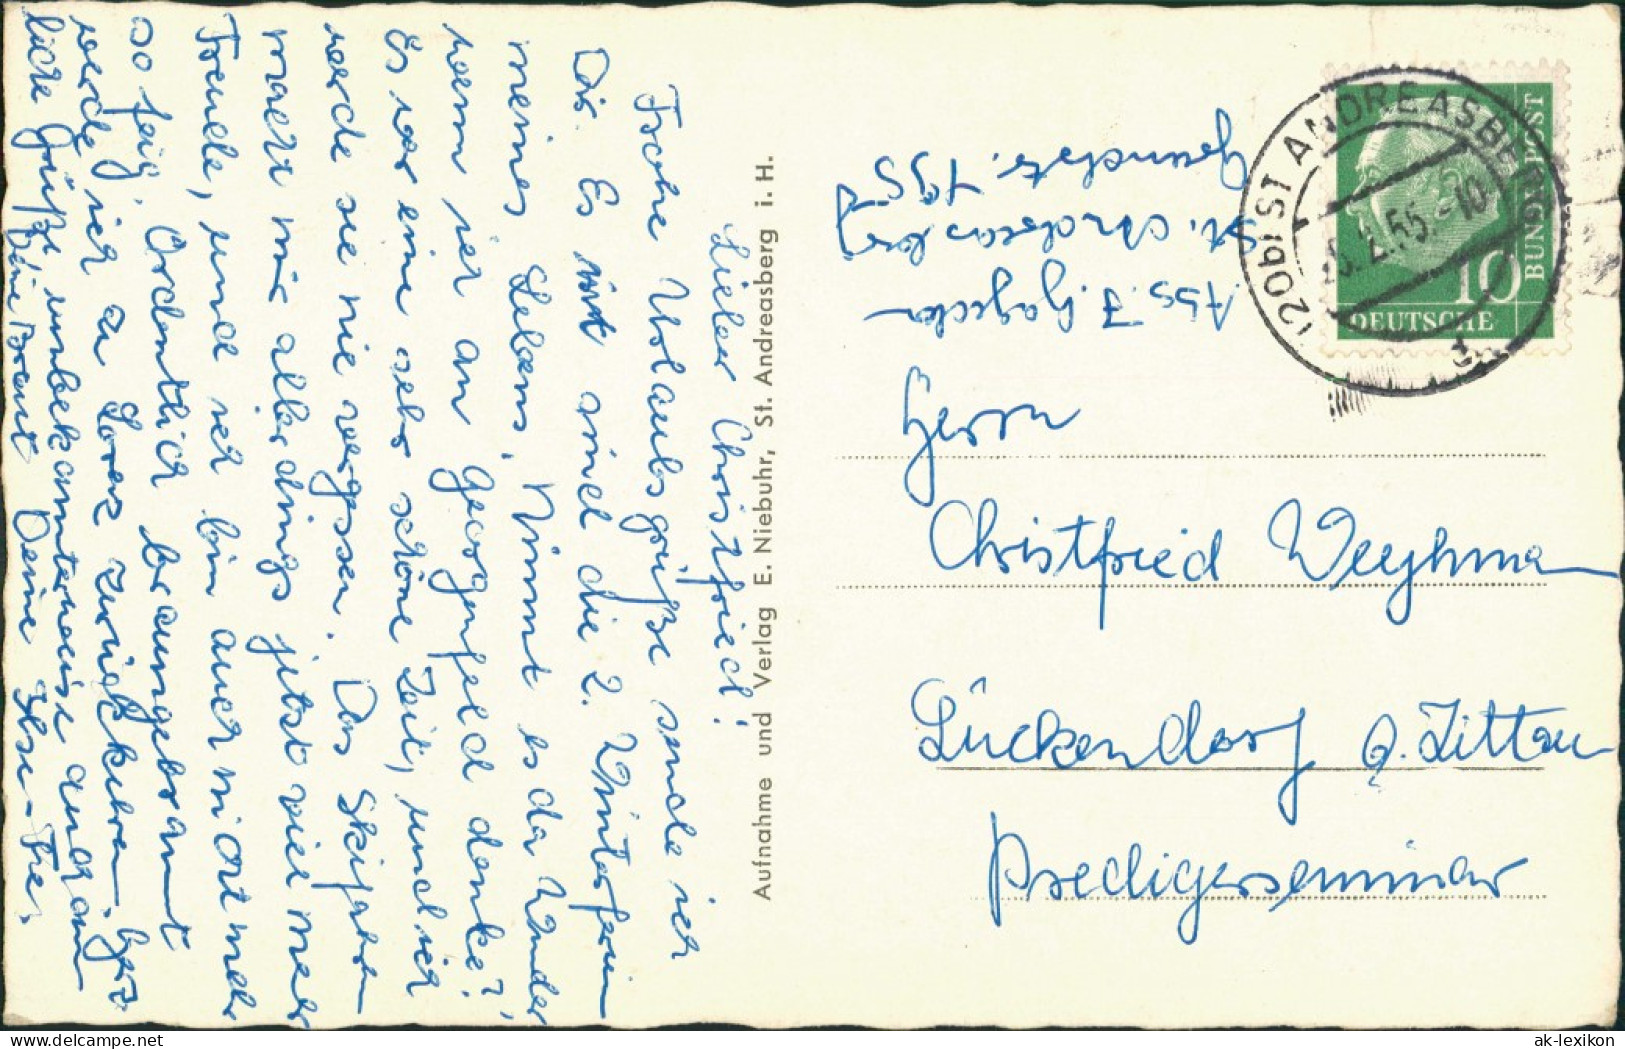 Lieber Christfried!
Frohe Urlaubsgrüße sende ich
Dir. Es sind die 2. Winterferien
meines Lebens. Nimmt es da Wunder,
wenn ich an Georgenfeld denke?
Es war eine sehr schöne Zeit, und ich
werde sie nie vergessen. Das Skifahren
macht mir allerdings jetzt viel mehr
Freude, und ich bin auch nicht mehr
so feig. Ordentlich braungebrannt
werde ich zu Lorez zurückkehren. Herz-
liche Grüße unbekannterweise auch an
Deine Braut Deine Ilse-
Aufnahme und Verlag E. Niebuhr, St. Andreasberg i. H.
Abs. J.
St. Andreasberg
195
(20b) ST ANDREASBERG
2.55.-10
d
DEUTSCHE
BUNDESPOST
10
Herrn
Christfried Weyhman
Lückendorf b. Zittau
Predigerseminar
hipstamp.com
ak-lexikon